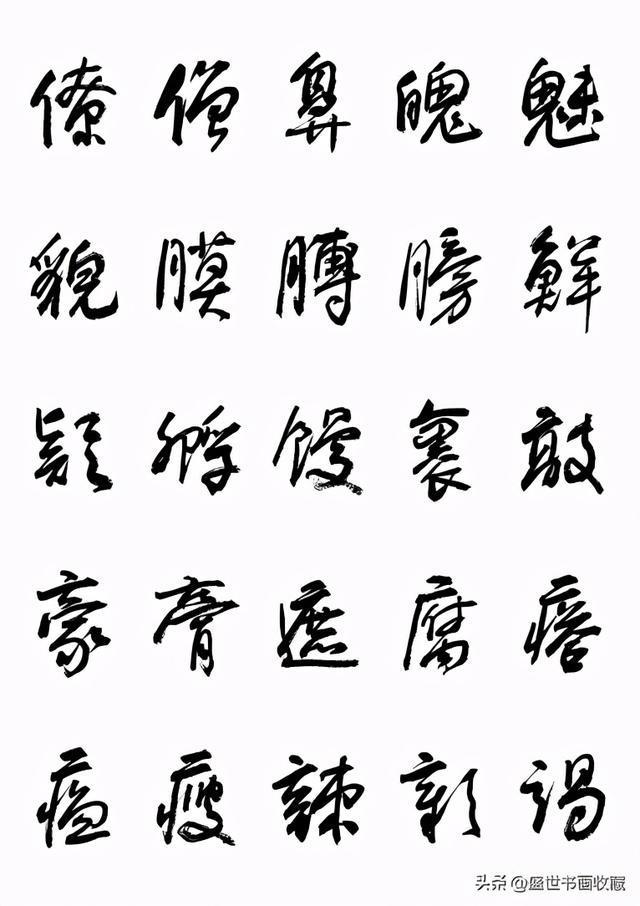 僚僧鼻魄魅
貌膜膊膀鲜
疑孵馒裹敲
豪膏遮腐瘩
瘟瘦辣彰竭
头条@盛世书画收藏